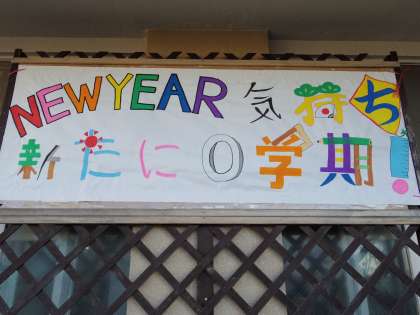 NEW YEAR 気荷ち
新たに0学期!